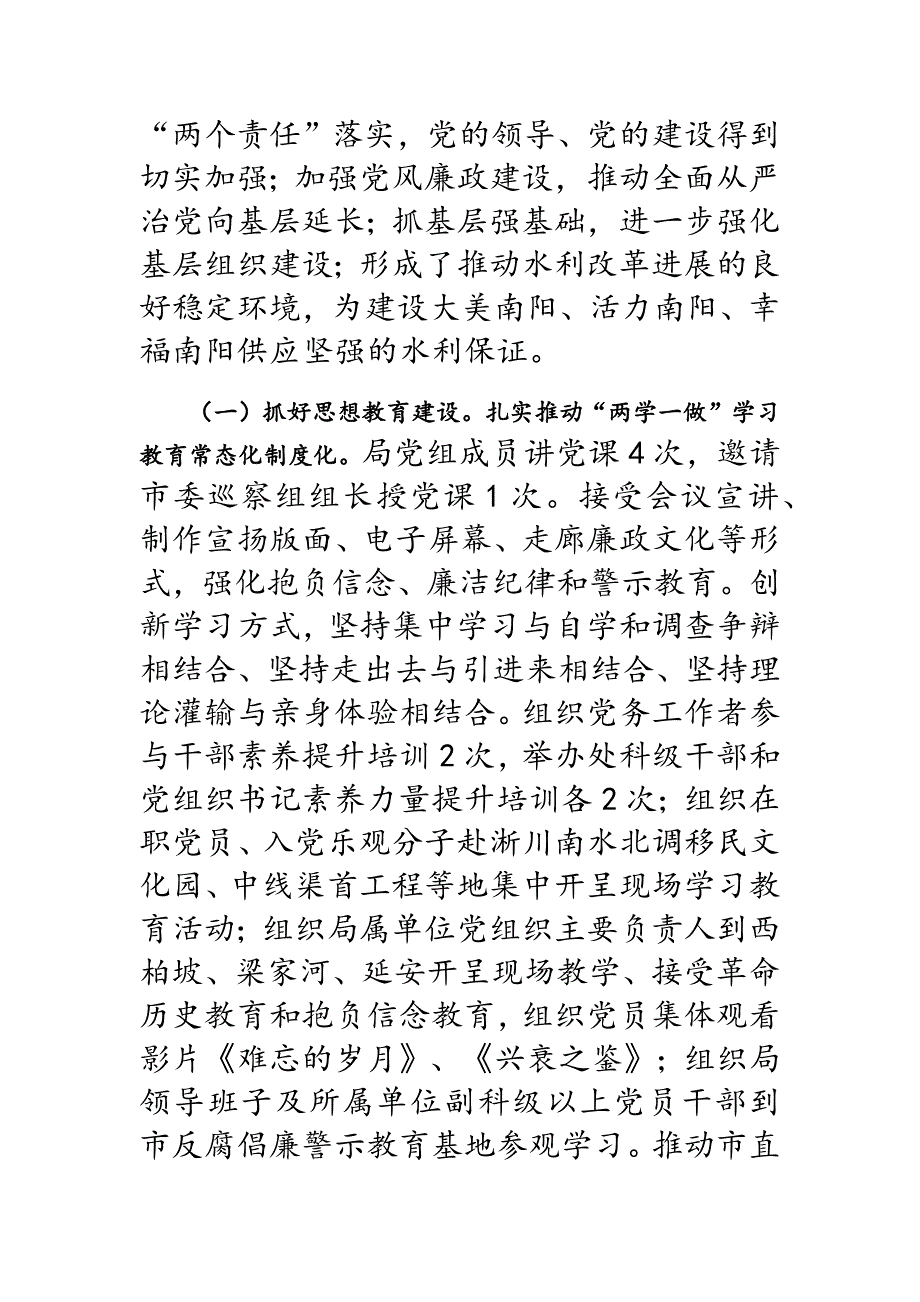 “两个责任”落实，党的领导、党的建设得到
切实加强；加强党风廉政建设，推动全面从严
治党向基层延长；抓基层强基础，进一步强化
基层组织建设；形成了推动水利改革进展的良
好稳定环境，为建设大美南阳、活力南阳、幸
福南阳供应坚强的水利保证。
（一）抓好思想教育建设。扎实推动“两学一做”学习
教育常态化制度化。局党组成员讲党课4次，邀请
市委巡察组组长授党课1次。接受会议宣讲、
制作宣扬版面、电子屏幕、走廊廉政文化等形
式，强化抱负信念、廉洁纪律和警示教育。创
新学习方式，坚持集中学习与自学和调查争辩
相结合、坚持走出去与引进来相结合、坚持理
论灌输与亲身体验相结合。组织党务工作者参
与干部素养提升培训2次，举办处科级干部和
党组织书记素养力量提升培训各2次；组织在
职党员、入党乐观分子赴淅川南水北调移民文
化园、中线渠首工程等地集中开呈现场学习教
育活动；组织局属单位党组织主要负责人到西
柏坡、梁家河、延安开呈现场教学、接受革命
历史教育和抱负信念教育，组织党员集体观看
影片《难忘的岁月》、《兴衰之鉴》；组织局
领导班子及所属单位副科级以上党员干部到
市反腐倡廉警示教育基地参观学习。推动市直